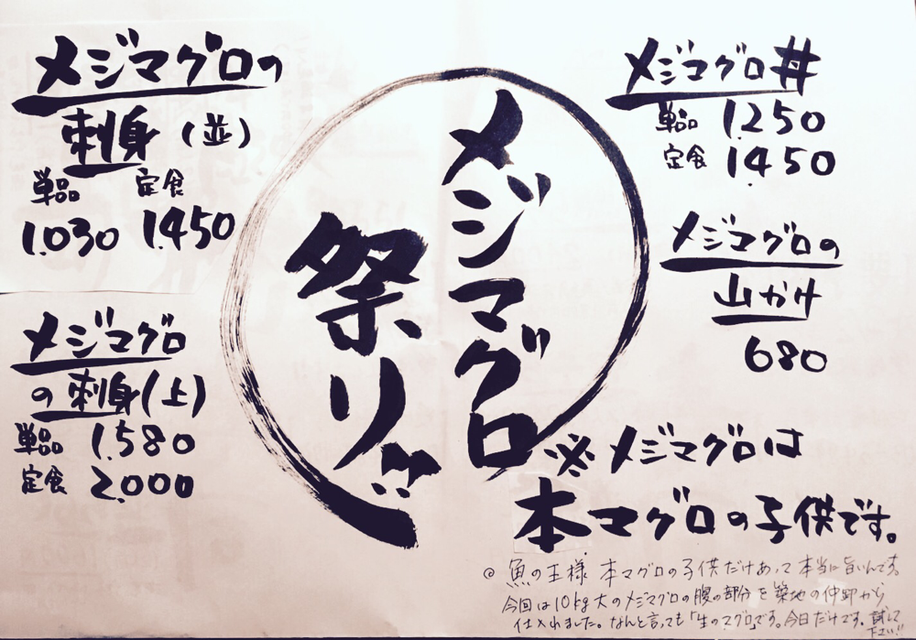 メジマグロの
刺身(並)
単品 定食
1.030 1.450
メジマグロ
の刺身(上)
単品 1.580
定食 2.000
メジマグロ
祭り!!
メジマグロ丼
単品 1.250
定食 1.450
メジマグロの
山かけ
680
※メジマグロは
本マグロの子供です。
◎魚の王様 本マグロの子供だけあって本当に旨いんです。
今回は10kg大のメジマグロの腹の部分を築地の仲卸から
仕入れました。なんと言っても「生のマグロ」です。今日だけです。試して
下さい!!